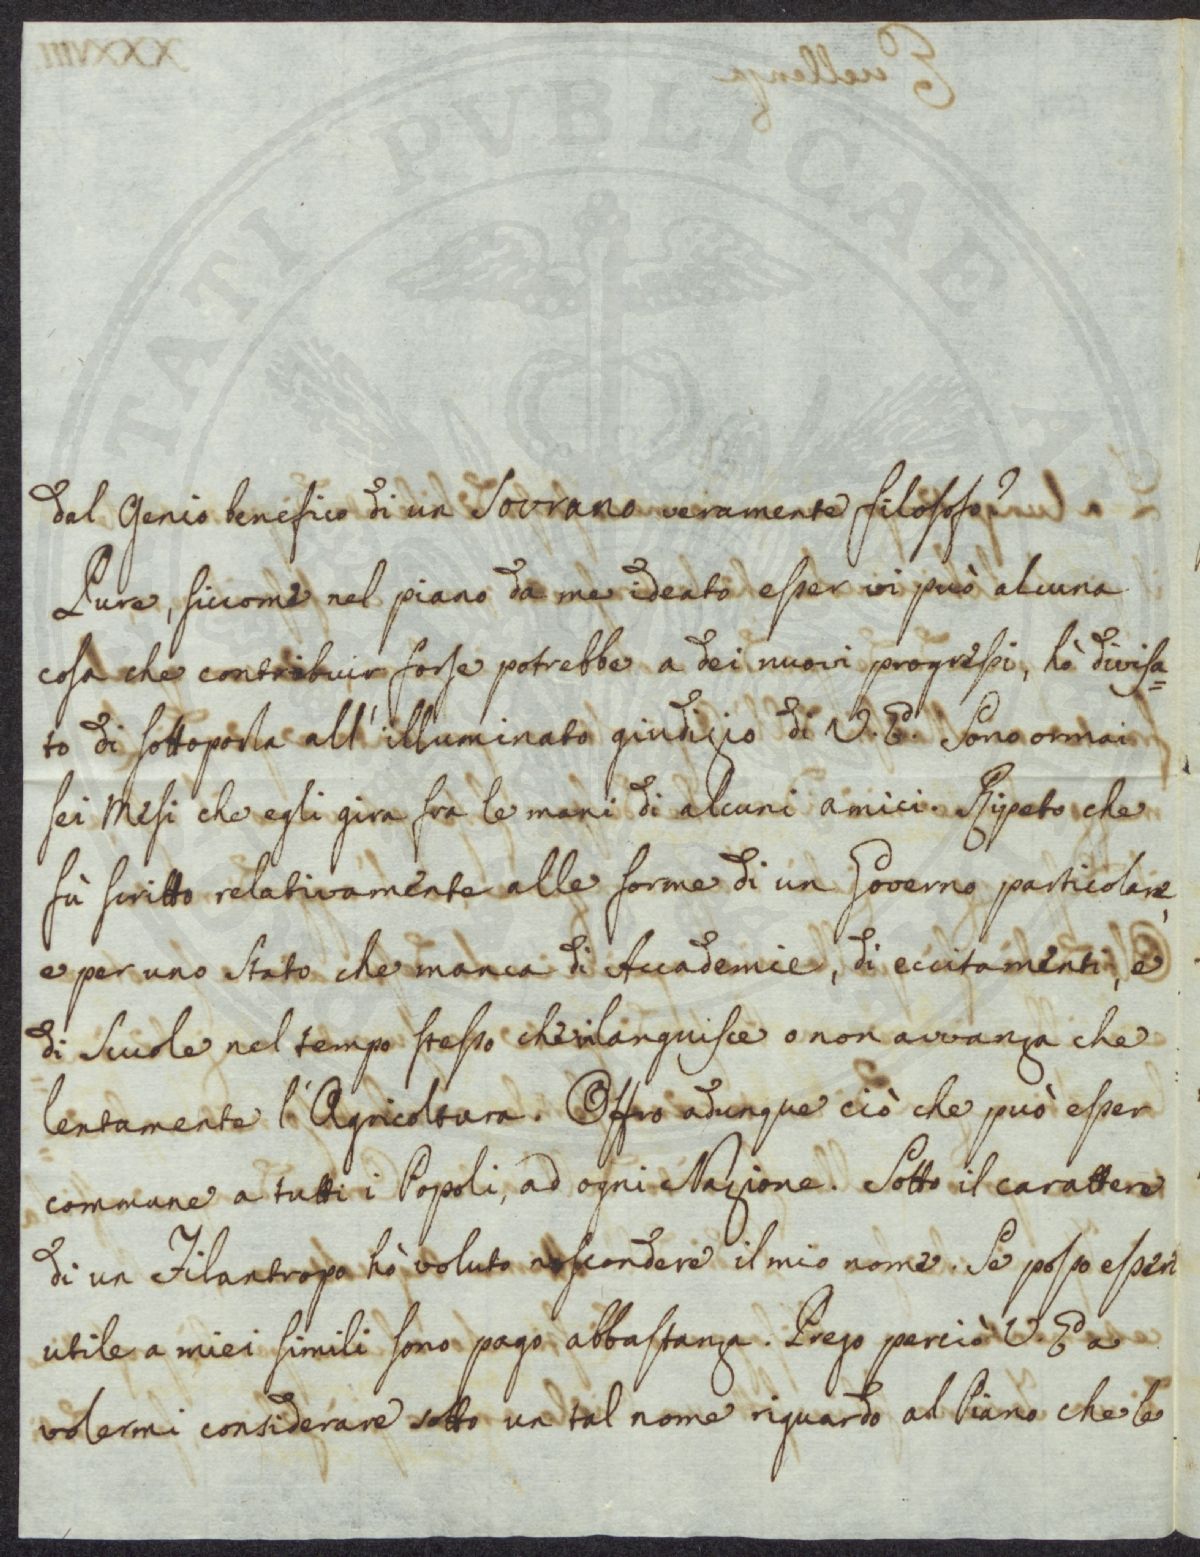 dal Genio benefico di un Sovrano veramente filosofo?
Pure, siccome nel piano da me ideato esser vi può alcuna
cosa che contribuir forse potrebbe a dei nuovi progressi, hò divisa=
to di sottoporla all'illuminato giudizio di V.E. Sono ormai
sei Mesi che egli gira frà le mani di alcuni amici. Ripeto che
fù scritto relativamente alle forme di un Governo particolare,
e per uno Stato che manca di Accademie, di eccitamenti, e
di Scuole nel tempo stesso che languisce o non avvanza che
lentamente l'Agricoltura. Offro adunque ciò che può esser
commune a tutti i Popoli, ad ogni Nazione. Sotto il carattere
di un Filantropo hò voluto nascondere il mio nome. Se posso esser
utile a miei simili sono pago abbastanza. Prego perciò V.E. a
volermi considerare sotto un tal nome riguardo al Piano che le